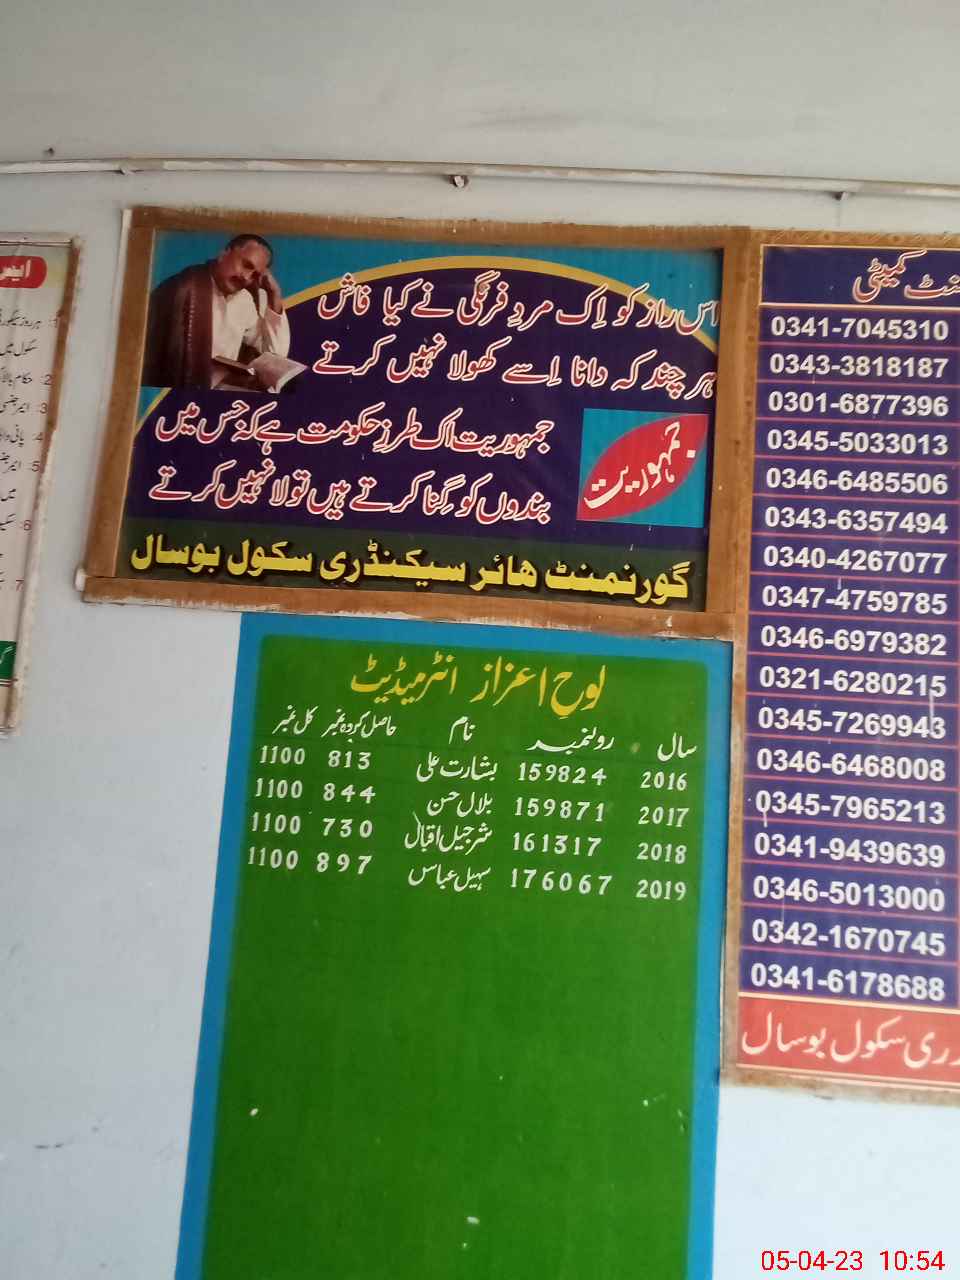 اس راز کو اِک مردِ فرنگی نے کیا فاش
ہر چند کہ دانا اِسے کھولا نہیں کرتے
جمہوریت اک طرزِ حکومت ہے کہ جس میں
بندوں کو گِنا کرتے ہیں تولا نہیں کرتے
جمہوریت
گورنمنٹ ھائر سیکنڈری سکول بوسال
لوحِ اعزاز انٹرمیڈیٹ
سال رولنمبر نام حاصل کردہ نمبر کل نمبر
2016 159824 بشارت علی 813 1100
2017 159871 بلال حسن 844 1100
2018 161317 شرجیل اقبال 730 1100
2019 176067 سہیل عباس 897 1100
کمیٹی
0341-7045310
0343-3818187
0301-6877396
0345-5033013
0346-6485506
0343-6357494
0340-4267077
0347-4759785
0346-6979382
0321-6280215
0345-7269943
0346-6468008
0345-7965213
0341-9439639
0346-5013000
0342-1670745
0341-6178688
سکول بوسال
05-04-23 10:54